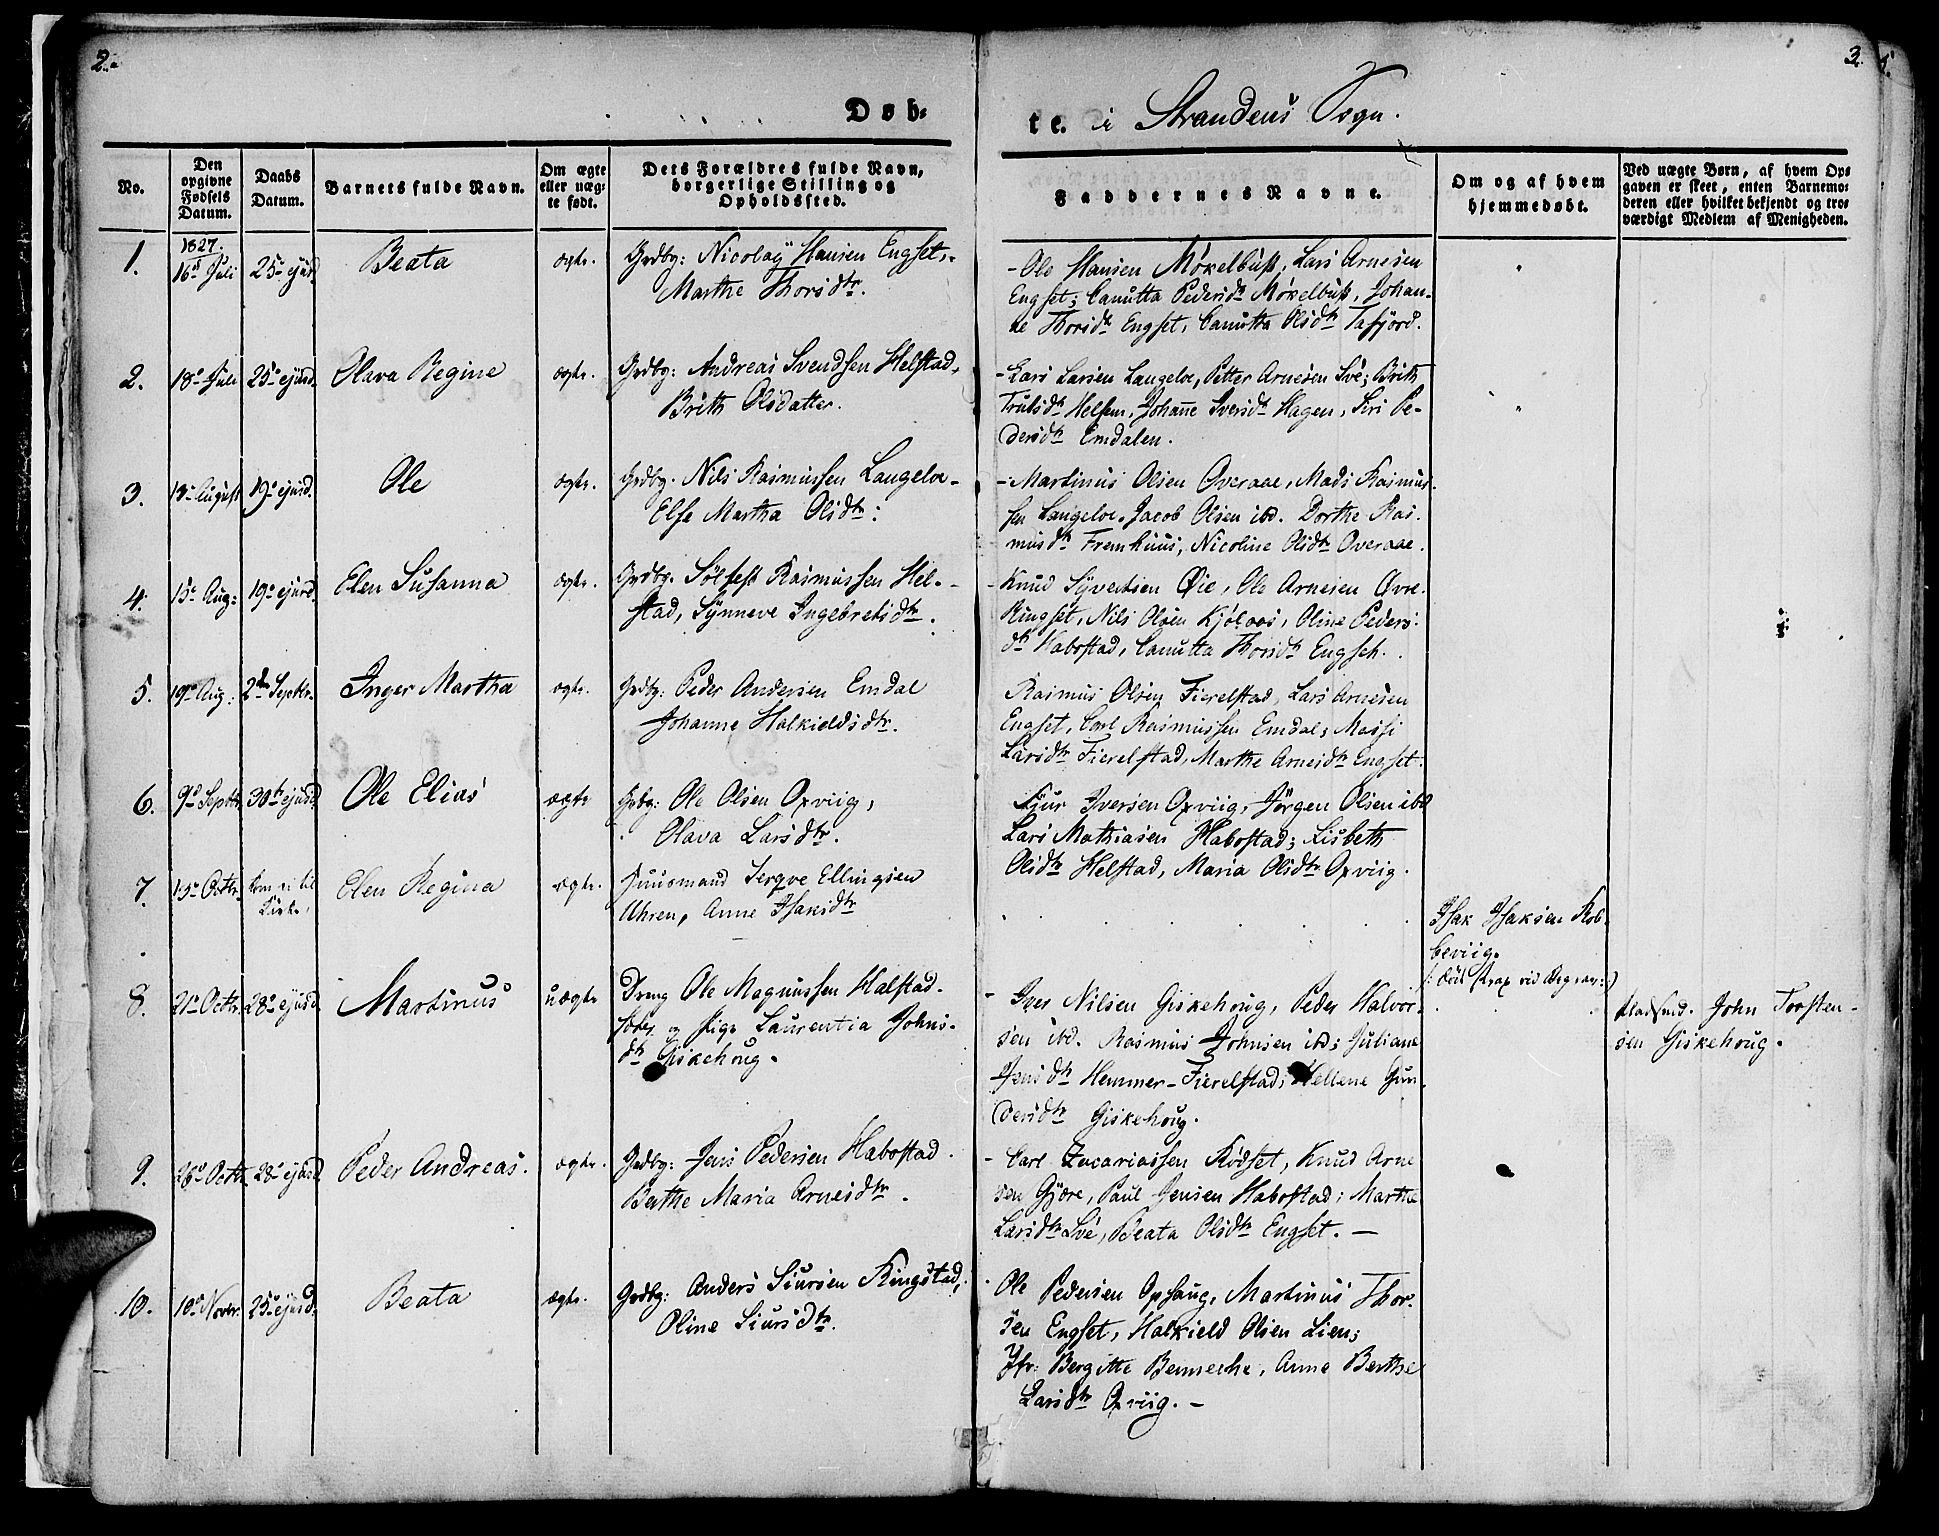 2.
3.
5.
Døb-
te. i Strandens Sogn.
No.
Den opgivne Fødsels Datum.
Daabs Datum.
Barnets fulde Navn.
Om ægte eller uæg- te født.
Dets Forældres fulde Navn, borgerlige Stilling og Opholdssted.
Faddernes Navne.
Om og af hvem hjemmedøbt.
Ved uægte Børn, af hvem Op- gaven er skeet, enten Barnemo- deren eller hvilket bekjendt og tro- værdigt Medlem af Menigheden.
1827.
1. 16de Juli 25de ejusd. Beata ægte. Grdbg: Nicolaÿ Hansen Engset,
Marthe Thorsdtr.
- Ole Hansen Moxelbust, Lars Arnesen
Engset; Canutta Pedersdtr Moxelbust, Johan-
ne Thorsdtr Engset, Canutta Olsdtr Tafjord.
2. 18de Juli 25de ejusd. Olava Regine ægte. Grdbg: Andreas Svendsen Helstad,
Brith Olsdatter.
- Lars Larsen Langeloe, Petter Arnesen Sve; Brith
Trulsdtr Helsem, Johanne Iversdtr Hagen, Siri Pe-
dersdtr Emdalen.
3. 13de August 19de ejusd. Ole ægte. Grdbg. Nils Rasmussen Langeloe-
Else Martha Olsdtr:
- Martinus Olsen Overaae, Mads Rasmus-
sen Langeloe, Jacob Olsen ibd. Dorthe Ras-
musdtr Fremhuus, Nicoline Olsdtr Overaae.
4. 15de Aug: 19de ejusd. Elen Susanna ægte. Grdbg. Sölfest Rasmussen Hel-
stad, Sÿnneve Ingebretsdtr.
- Knud Sÿvertsen Øie, Ole Arnesen Øvre-
Ringset, Nils Olsen Kjölaas, Oline Peders-
dtr Habostad, Canutta Thorsdtr Engseth.
5. 19de Aug: 2den Septbr. Inger Martha ægte. Grdbg: Peder Andersen Emdal
Johanne Halkieldsdtr.
Rasmus Olsen Fierelstad, Lars Arnesen
Engset, Carl Rasmussen Emdal; Massi
Larsdtr Fierelstad, Marthe Arnesdtr Engset.
6. 9de Septbr. 30te ejusd. Ole Elias ægte Grdbg: Ole Olsen Opviig,
Olava Larsdtr.
Siur Iversen Opviig, Jörgen Olsen ibd
Lars Mathiasen Habostad; Lisbeth
Olsdtr Helstad, Maria Olsdtr Opviig.
7. 15de Octbr. Kom ei til Kirke, Elen Regina ægte. Huusmand Jerqve Ellingsen
Uhren, Anne Isaksdtr
Isak Isaksen Rob-
beviig.
8. 21de Octbr. 28de ejusd. Martinus uægte Dreng Ole Magnussen Halstad-
og Pige Laurentia Johns-
dtr Giskehoug.
- Iver Nilsen Giskehoug, Peder Halvor-
sen ibd. Rasmus Johnsen ibd; Juliane
Jensdtr Hemmer-Fierelstad; Hellene Gun-
dersdtr Giskehoug.
Pladsmd. John Torsten-
sen Giskehoug.
9. 26de Octbr. 28de ejusd. Peder Andreas. ægte. Grdbg: Jens Pedersen Habostad.
Berthe Maria Arnesdtr.
- Carl Zacariassen Rödset, Knud Arne
sen Gjære, Paul Jensen Habostad; Marthe
Larsdtr Sve, Beata Olsdtr Engset. -
10. 10de Novbr. 25de ejusd. Beata ægte. Grdbg: Anders Siursen Ringstad,
Oline Siursdtr.
Ole Pedersen Ophaug, Martinus Thor-
sen Engset, Halkield Olsen Lien;
Jfr: Bergitte Bennecke, Anne Berthe
Larsdtr Opviig. -